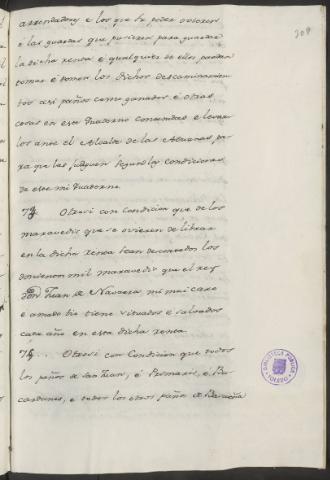 308
arrendadores e los que su poder ovieren
e las guardas que pusieren para guardar
la dicha renta e qualquier de ellos puedan
tomar e tomen los dichos descaminamien-
tos asi paños como ganados e otras
cosas en este Quaderno contenidas e levar-
los ante el Alcalde de las Aduanas pa-
ra que las judguen segun las condiciones
de este mi Quaderno.
73. Otrosi con condicion que de los
maravedis que se ovieren de librar
en la dicha renta sean descontados los
docientos mil maravedis que el rey
Don Juan de Navarra, mi mui caro
e amado tio tiene situados e salvados
cada año en esta dicha renta.
74. Otrosi con condicion que todos
los paños de San Juan, e
e todos los otros paños de
BIBLIOTECA PUBLICA
TOLEDO